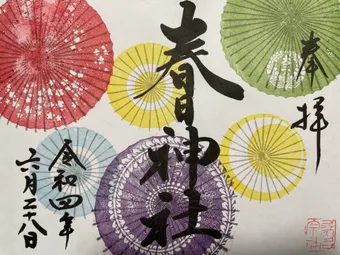 奉拝
春日神社
令和四年
六月二十八日